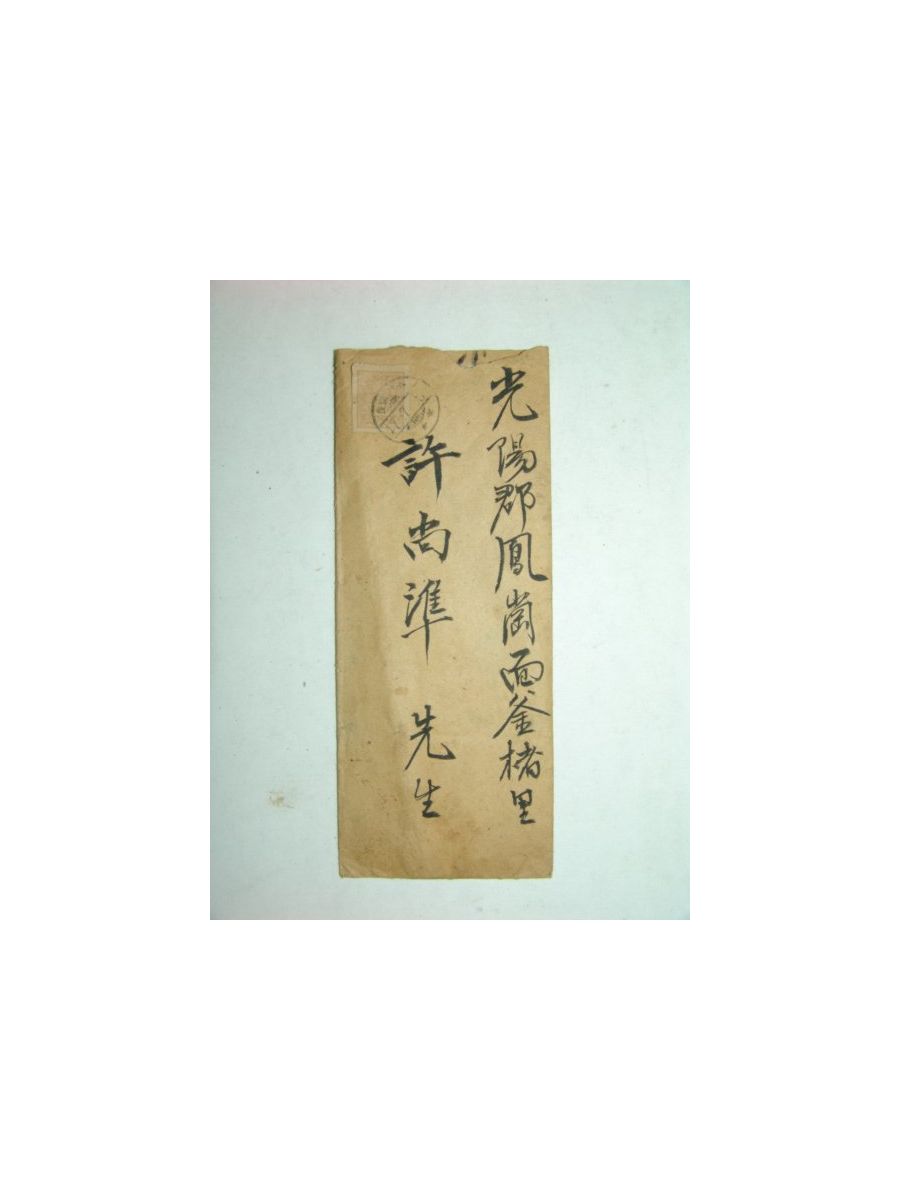 光陽郡鳳崗面釜楮里
許尚準 先生